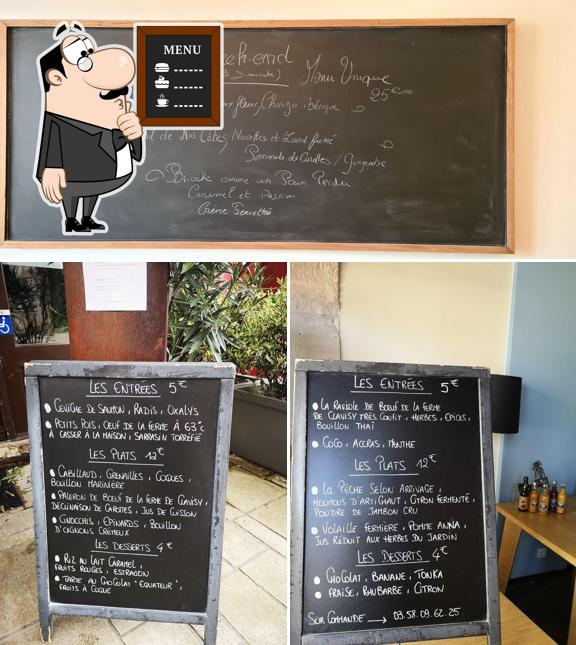 MENU
ek-end
Dimanche)
Menu Unique
25 euros
fleur, Chorizo ibérique
de Nos Côtes, Noisettes et Lard fumé
Pommade de Carottes / Gingembre
Brioche comme un Pain Perdu
Caramel et Passion
Crème
LES ENTRÉES 5€
CEVICHE DE SAUMON, RADIS, OXALYS
PETITS POIS, OEUF DE LA FERME À 63°C
À CASSER À LA MAISON, SARRASIN TORRÉFIÉ
LES PLATS 12€
CABILLAUD, GRENAILLES, COQUES,
BOUILLON MARINIÈRE
PALERON DE BOEUF DE LA FERME DE CLAVISY,
DÉCLINAISON DE CAROTTES, JUS DE CUISSON
GNOCCHIS, EPINARDS, BOUILLON
D'OIGNONS CRÉMEUX
LES DESSERTS 4€
RIZ AU LAIT CARAMEL,
FRUITS ROUGES, ESTRAGON
TARTE AU CHOCOLAT "EQUATEUR",
FRUITS À COQUE
LES ENTRÉES 5€
LA RAVIOLE DE BOEUF DE LA FERME
DE CLAVISY TRÈS CONFIT, HERBES, EPICES,
BOUILLON THAÏ
COCO, ACCRAS, MENTHE
LES PLATS 12€
LA PÊCHE SELON ARRIVAGE,
HOUMOUS D'ARTICHAUT, CITRON FERMENTÉ,
POUDRE DE JAMBON CRU
VOLAILLE FERMIÈRE, POMME ANNA,
JUS RÉDUIT AUX HERBES DU JARDIN
LES DESSERTS 4€
CHOCOLAT, BANANE, TONKA
FRAISE, RHUBARBE, CITRON
SUR COMMANDE → 03.58.09.62.25